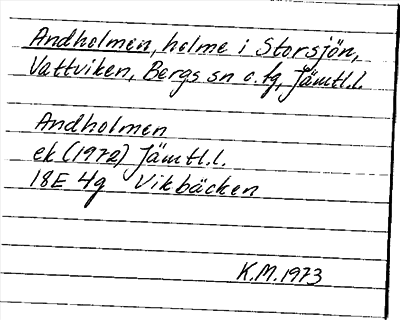 Andholmen, holme i Storsjön,
Vattviken, Bergs sn o. tg, Jämtl.l.
Andholmen
ek (1972) Jämtl.l.
18E 4g Vikbäcken
K.M. 1973